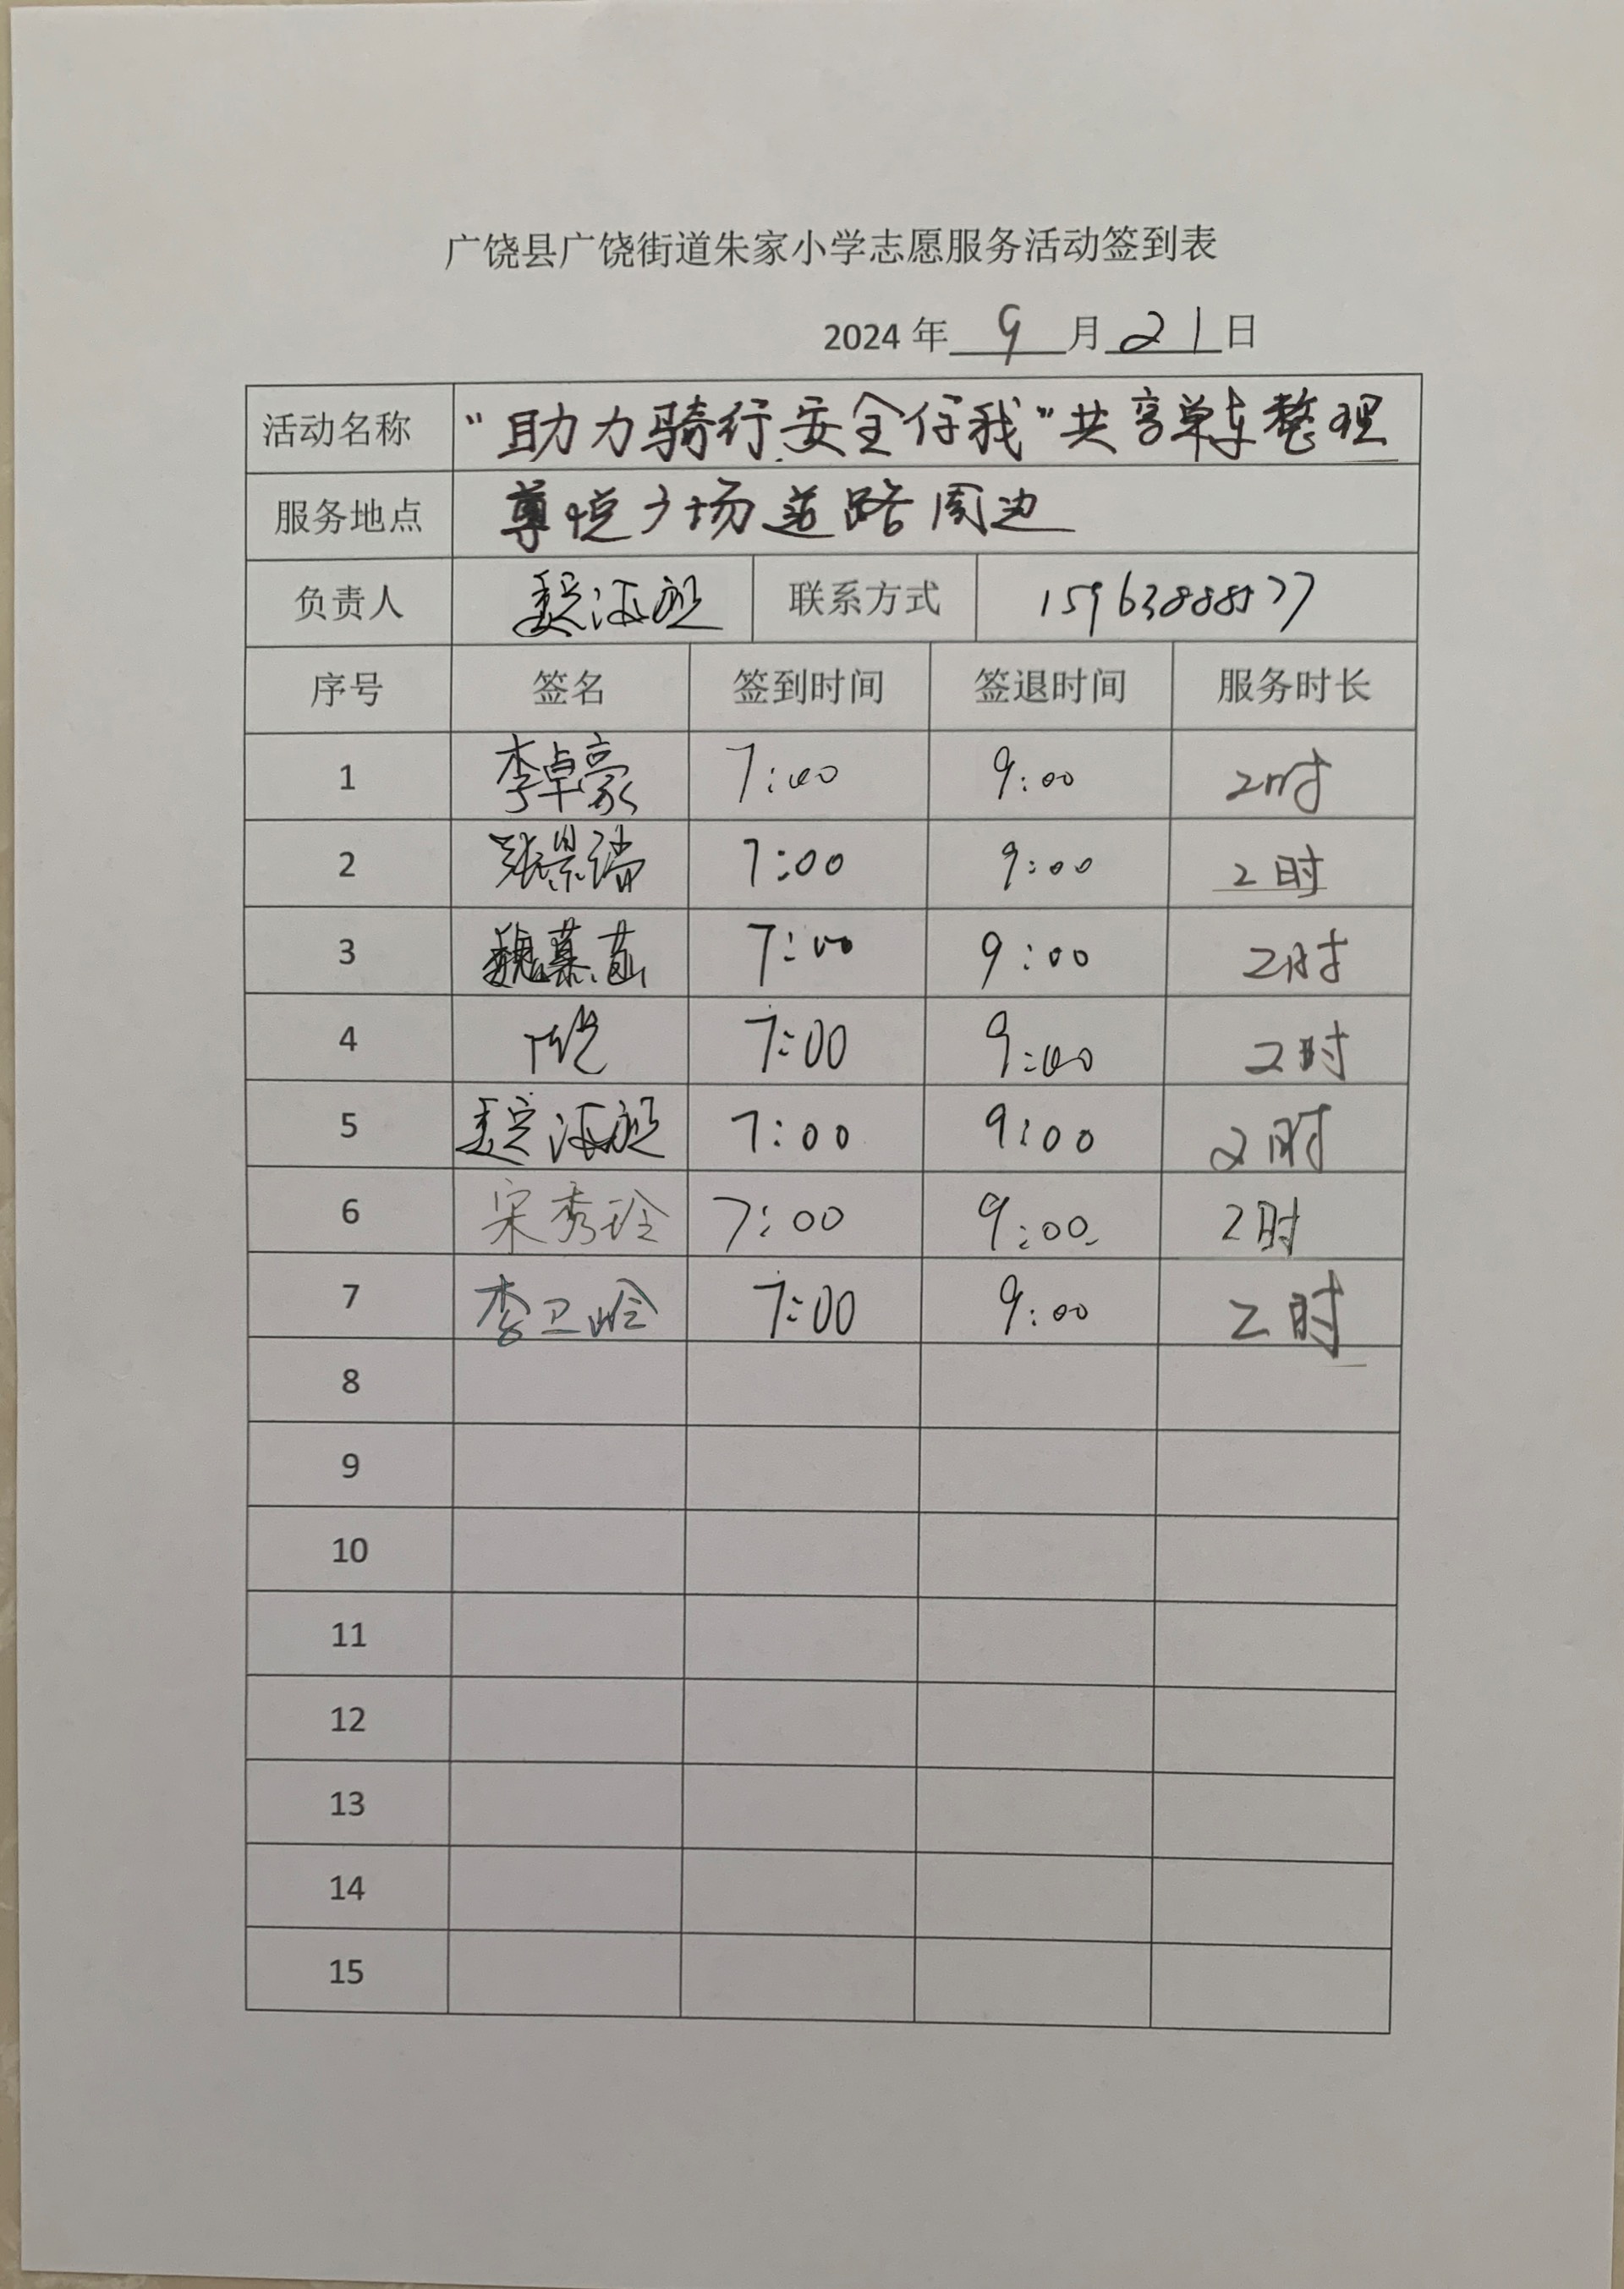 广饶县广饶街道朱家小学志愿服务活动签到表
2024 年 9 月 21 日
活动名称 “助力骑行安全有我”共享单车整理
服务地点 尊悦广场道路周边
负责人 魏海 联系方式 15963888577
序号 签名 签到时间 签退时间 服务时长
1 李卓豪 7:00 9:00 2时
2 张景 7:00 9:00 2时
3 魏慕 7:00 9:00 2时
4 7:00 9:00 2时
5 魏海 7:00 9:00 2时
6 宋秀玲 7:00 9:00 2时
7 李卫 7:00 9:00 2时
8
9
10
11
12
13
14
15